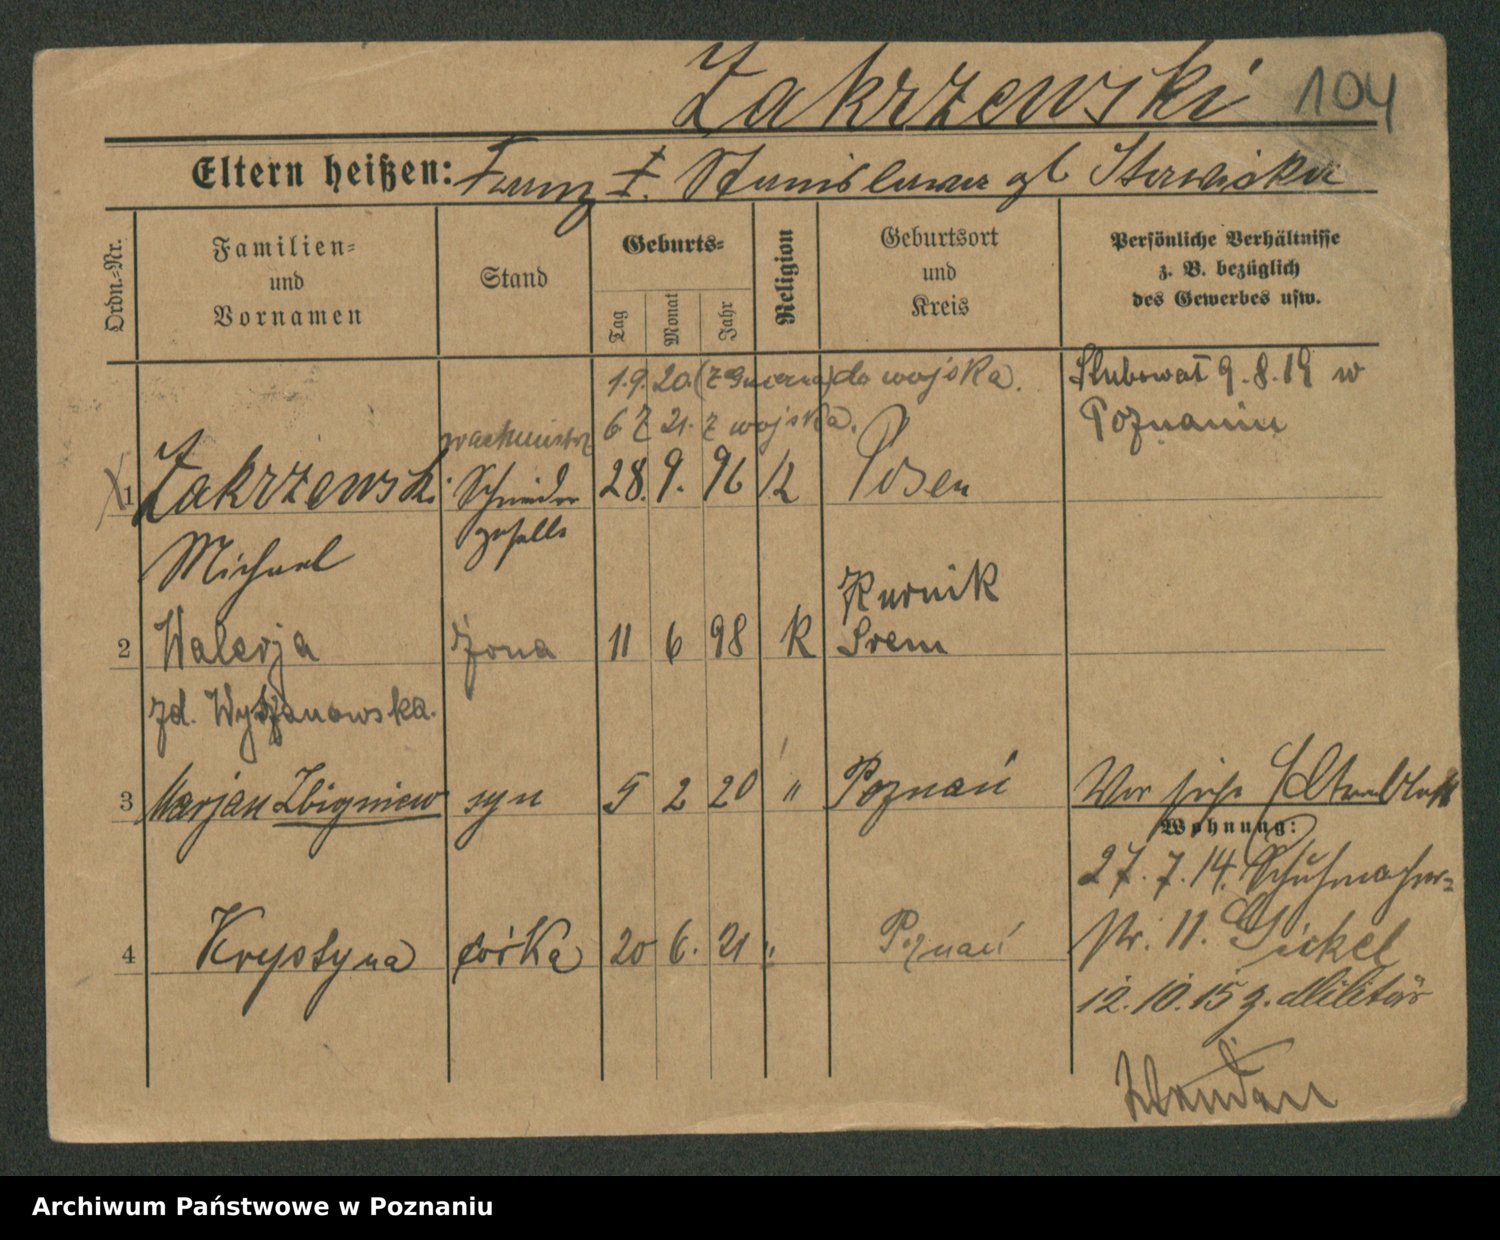 Zakrzewski 104
Eltern heißen: Franz †. Stanislawa gb
Ordn.-Nr.
Familien-
und
Vornamen
Stand
Geburts-
Tag
Monat
Jahr
Religion
Geburtsort
und
Kreis
Persönliche Verhältnisse
z. B. bezüglich
des Gewerbes usw.
1.9.20. do wojska.
Ślubował 9.8.19 w
6 7 21. z wojska.
Poznaniu
wachmistrz
1 Zakrzewski Schneider 28. 9. 96 K Posen
geselle
Michael
Kurnik
2 Walerja żona 11 6 98 K Śrem
zd.
3 Marjan Zbigniew syn 5 2 20 " Poznań
Vor siehe
Wohnung:
27.7.14. Schuhmacher-
str. 11. Gickel
4 Krystyna córka 20 6. 21 " Poznań
12.10.15 z. Militär
Archiwum Państwowe w Poznaniu